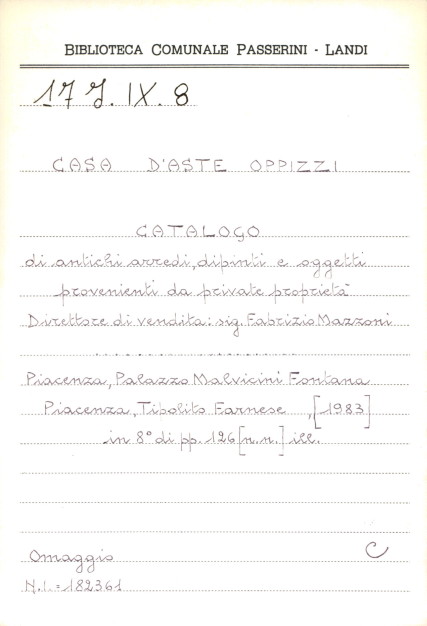 BIBLIOTECA COMUNALE PASSERINI - LANDI
17 J. IX. 8
CASA D'ASTE OPPIZZI
CATALOGO
di antichi arredi, dipinti e oggetti
provenienti da private proprietà
Direttore di vendita: sig. Fabrizio Mazzoni
..................
Piacenza, Palazzo Malvicini Fontana
Piacenza, Tipolito Farnese, [1983]
in 8° di pp. 126 [n.n.] ill.
Omaggio C
N.I. = 182361